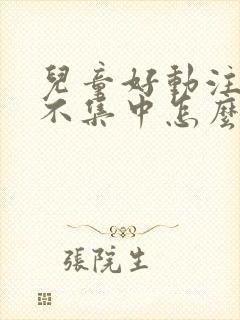 兒童好動注
不集中怎麼
張院生